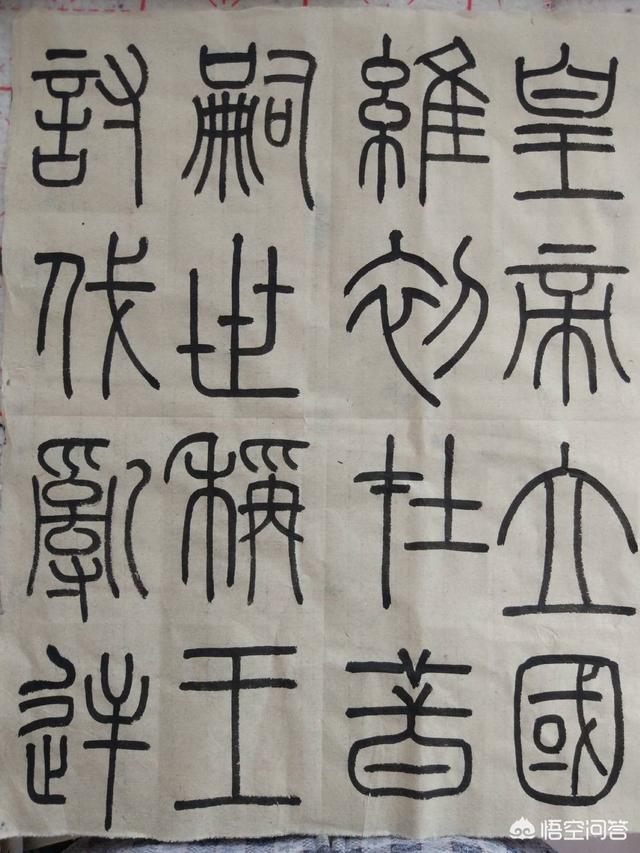 皇帝立國
維初在昔
嗣世稱王
討伐亂逆
悟空问答